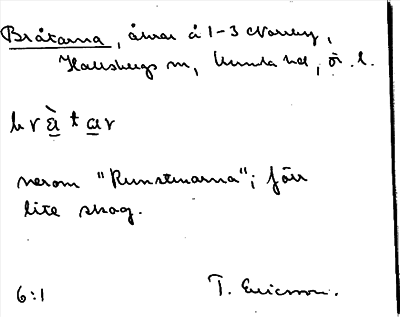 Bråtarna, åkrar å 1-3 Norrby,
Hallsbergs sn, Kumla hd, ör. l.
brà̱ta̱r
nerom "Runstenarna"; förr
lite skog.
6:1 T. Ericsson.